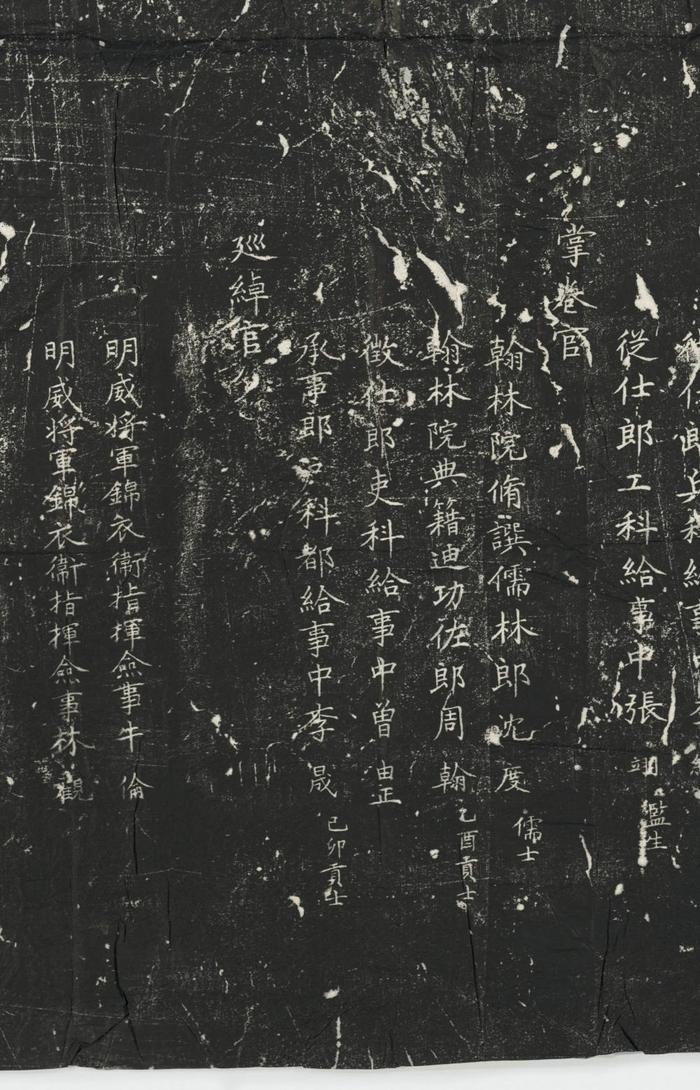 仕郎兵科給事
從仕郎工科給事中張 生
掌卷官
翰林院脩譔儒林郎沈度 儒士
翰林院典籍迪功佐郎周翰 乙酉貢士
徵仕郎吏科給事中曾由正
承事郎吏科都給事中李晟 己卯貢士
廵綽官
明威将軍錦衣衛指揮僉事牛倫
明威将軍錦衣衛指揮僉事林觀